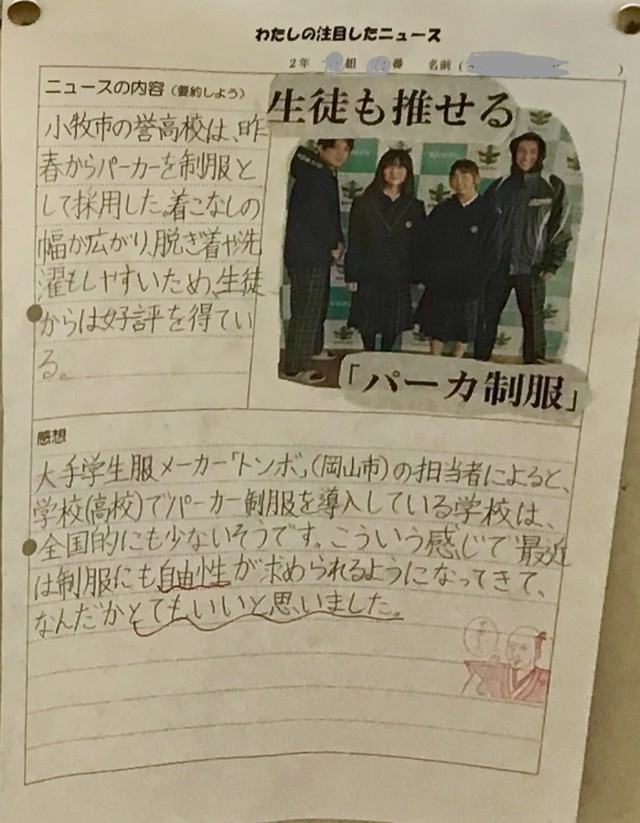 わたしの注目したニュース
2年 組 番 名前( )
ニュースの内容(要約しよう)
小牧市の誉高校は、昨
春からパーカーを制服と
して採用した。着こなしの
幅が広がり、脱ぎ着や洗
濯もしやすいため、生徒
からは好評を得てい
る。
生徒も推せる
「パーカ制服」
感想
大手学生服メーカー「トンボ」(岡山市)の担当者によると、
学校(高校)でパーカー制服を導入している学校は、
全国的にも少ないそうです。こういう感じで最近
は制服にも自由性が求められるようになってきて、
なんだかとてもいいと思いました。